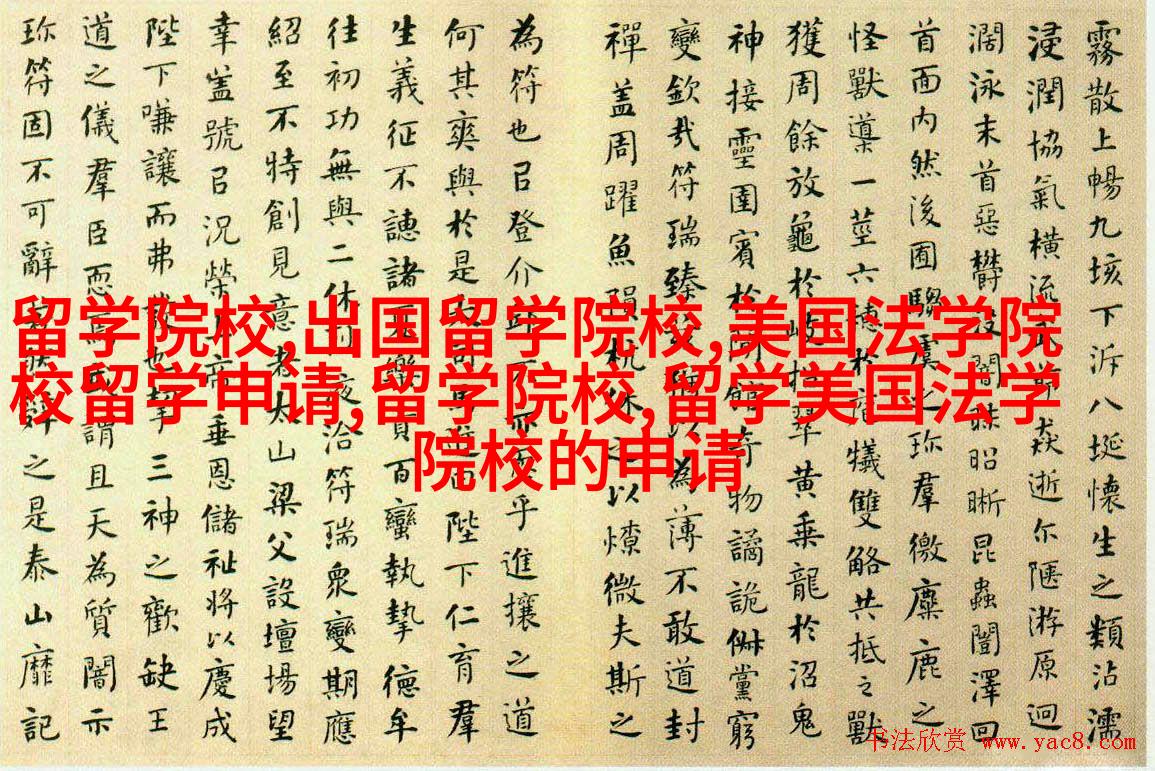 霧散上暢九垓下泝八埏懷生之類沾濡
浸潤協氣橫流武逝尒陿游原迥
濶泳末首惡欝没闇昧昭晰昆蟲闓澤回
首面内然後囿騶虞之珍羣徼麋鹿之
怪獸導一莖六穗於犧雙觡共抵之獸
獲周餘放龜於岐翠黄乗龍於沼鬼
神接靈圉賓於館奇物譎詭俶黨窮
變欽哉符瑞臻以為薄不敢道封
禪盖周躍魚隕杭休之以燎微夫斯之
為符也㠯登介丘不乎進攘之道
何其爽與於是大司馬進曰陛下仁育羣
生義征不譓諸夏樂貢百蠻執摯德牟
往初功無與二休洽符瑞衆變期應
紹至不特創見意者太山梁父設壇場望
幸盖號㠯况榮上帝垂恩儲祉将以慶成
陛下嗛讓而弗發也挈三神之歡缺王
道之儀羣臣恧焉謂且天為質闇示
珍符固不可辭之是泰山靡記
留学院校,出国留学院校,美国法学院
校留学申请,留学院校,留学美国法学
院校的申请
书法欣赏 www.yac8.com